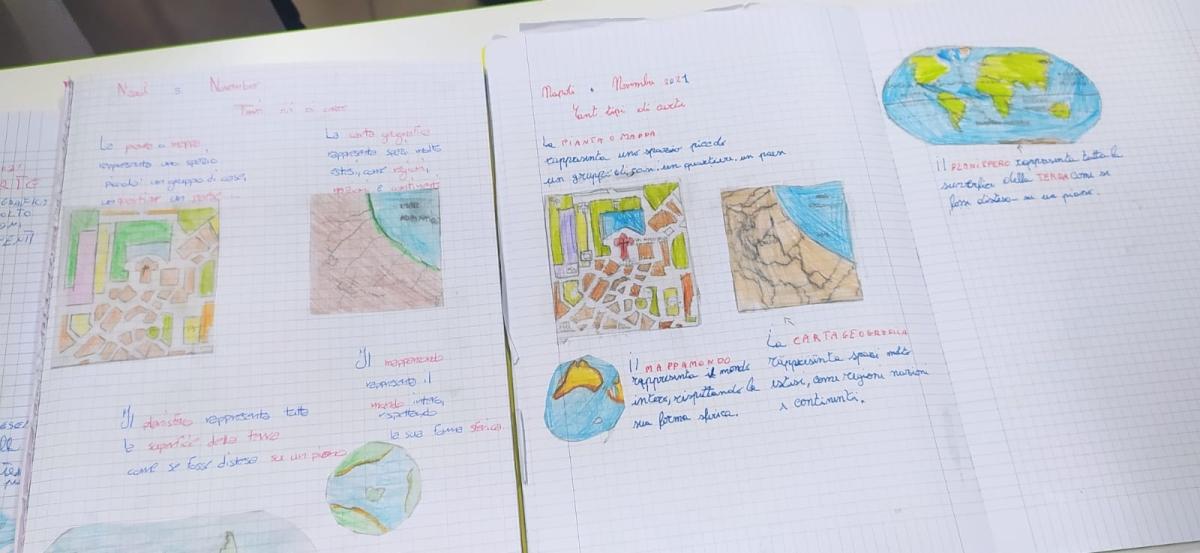 November
La carta geografica
rappresenta spazi molto
estesi, come regioni,
nazioni e continenti
rappresenta uno spazio
piccolo: un gruppo di case,
un quartiere un paese
MARE
ADRIATICO
Il mappamondo
rappresenta il
mondo intero,
rispettando
la sua forma sferica.
Il planisfero rappresenta tutta
la superficie della terra
come se fosse distesa su un piano
Napoli 2021
Tanti tipi di carte
La PIANTA O MAPPA
rappresenta uno spazio piccolo
un gruppo di case, un quartiere, un paese
Il MAPPAMONDO
rappresenta il mondo
intero, rispettando la
sua forma sferica.
La CARTA GEOGRAFICA
rappresenta spazi molto
estesi, come regioni nazioni
e continenti.
il PLANISFERO rappresenta tutta la
superficie della TERRA come se
fosse distesa su un piano.